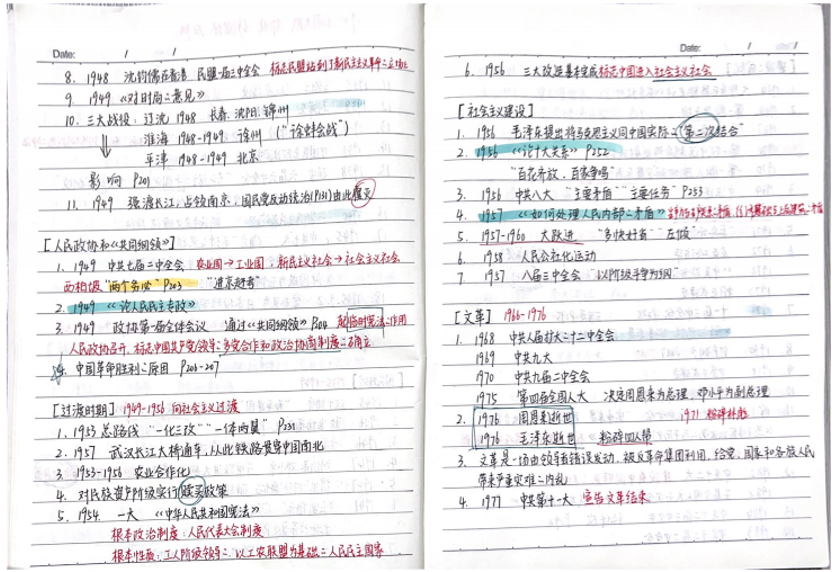 Date: / /
8. 1948 沈钧儒在香港 民盟一届三中全会 标志民盟站到了新民主主义革命之立场上
9. 1949 《对时局之意见》
10. 三大战役：辽沈 1948 长春、沈阳、锦州
淮海 1948-1949 徐州 （“徐蚌会战”）
平津 1948-1949 北京
影响 P201
11. 1949 强渡长江，占领南京，国民党反动统治(P131)由此覆灭
[人民政协和《共同纲领》]
1. 1949 中共七届二中全会 农业国→工业国，新民主义社会→社会主义社会
西柏坡 "两个务必" P203 "进京赶考"
2. 1949 《论人民民主专政》
3. 1949 政协第一届全体会议 通过《共同纲领》P204 起临时宪法之作用
人民政协召开，标志中国共产党领导之多党合作和政治协商制度之确立
4. 中国革命胜利之原因 P206-207
[过渡时期] 1949-1956 向社会主义过渡
1. 1953 总路线 "一化三改" "一体两翼" P231
2. 1957 武汉长江大桥通车，从此铁路贯穿中国南北
3. 1953-1956 农业合作化
4. 对民族资产阶级实行赎买政策
5. 1954 一大 《中华人民共和国宪法》
根本政治制度：人民代表大会制度
根本性质：工人阶级领导之、以工农联盟为基础之人民民主国家
Date: / /
6. 1956 三大改造基本完成标志中国进入社会主义社会
[社会主义建设]
1. 1956 毛泽东提出将马克思主义同中国实际之"第二次结合"
2. 1956 《论十大关系》 P252
"百花齐放、百家争鸣"
3. 1956 中共八大 "主要矛盾" "主要任务" P253
4. 1957 《如何处理人民内部之矛盾》
5. 1957-1960 大跃进 "多快好省" "左倾"
6. 1958 人民公社化运动
7. 1957 八届三中全会 "以阶级斗争为纲"
[文革] 1966-1976
1. 1968 中共八届扩大十二中全会
1969 中共九大
1970 中共九届二中全会
1975 第四届全国人大 决定周恩来为总理，邓小平为副总理
2. 1976 周恩来逝世 1971 粉碎林彪
1976 毛泽东逝世 粉碎四人帮
3. 文革是一场由领导者错误发动，被反革命集团利用，给党、国家和各族人民
带来严重灾难之内乱
4. 1977 中共第十一大 宣告文革结束